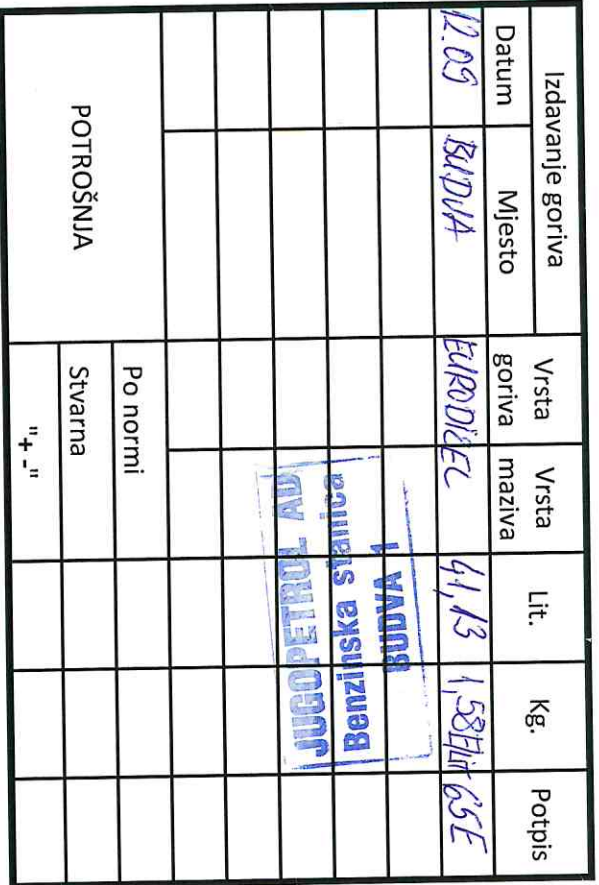 Izdavanje goriva
Datum Mjesto Vrsta goriva Vrsta maziva Lit. Kg. Potpis
12.09 BUDVA EURODIZEL 41,13 1,58E/Lit 65E
JUGOPETROL AD
Benzinska stanica
BUDVA 1
POTROŠNJA
Po normi
Stvarna
"+ -"